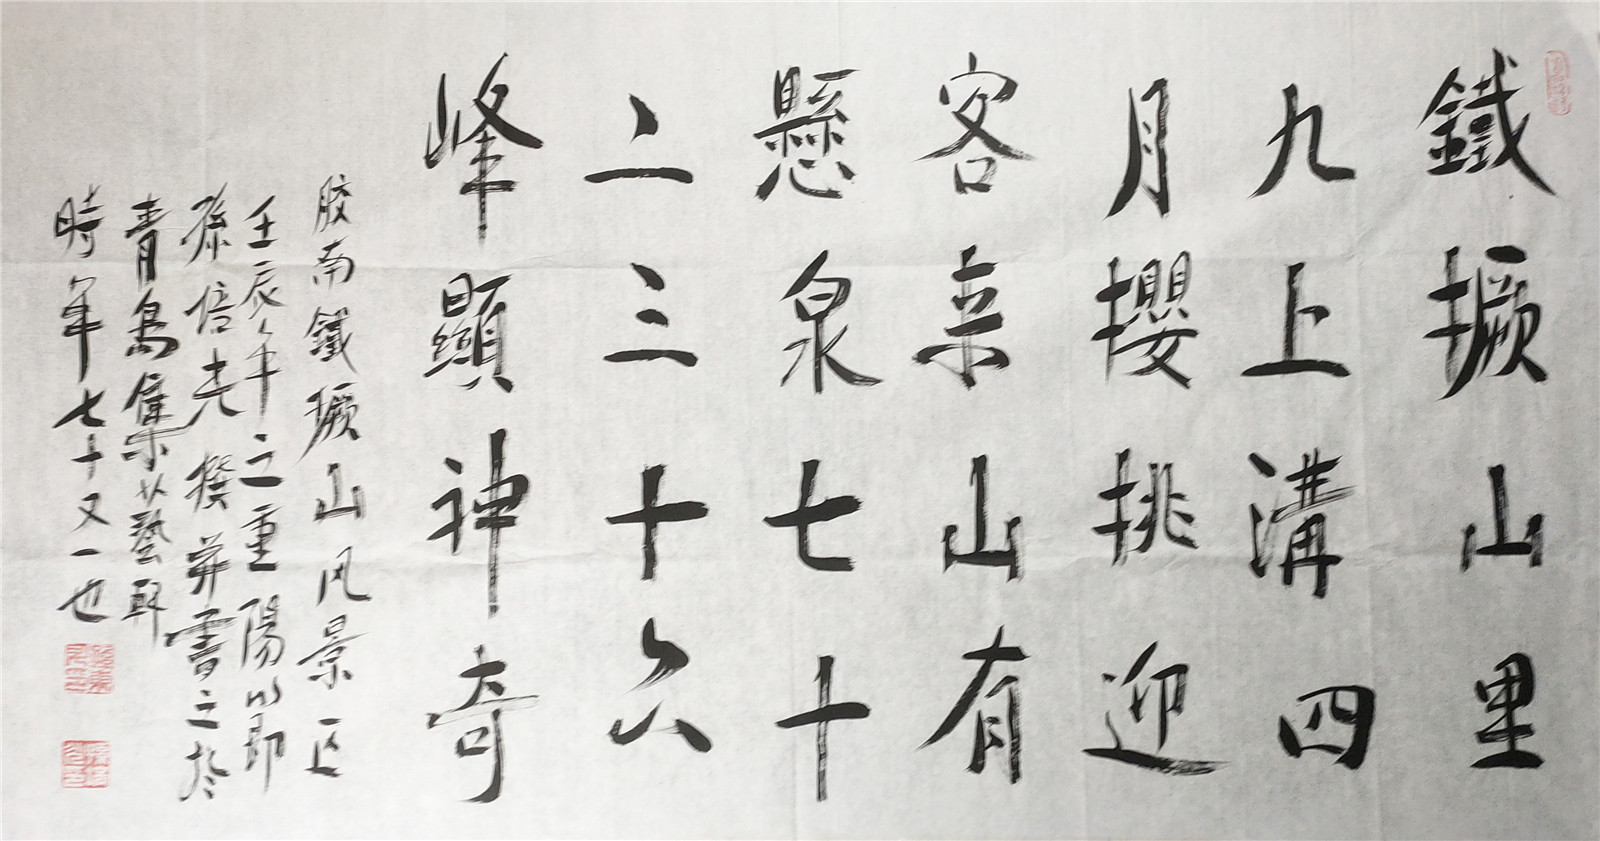 鐵撅山里
九上溝四
月櫻挑迎
客来山有
懸泉七十
二三十六
峰顯神奇
胶南鐵撅山风景区
壬辰年之重陽以即
孫信撰并書之於
青島集藝軒
時年七十又一也